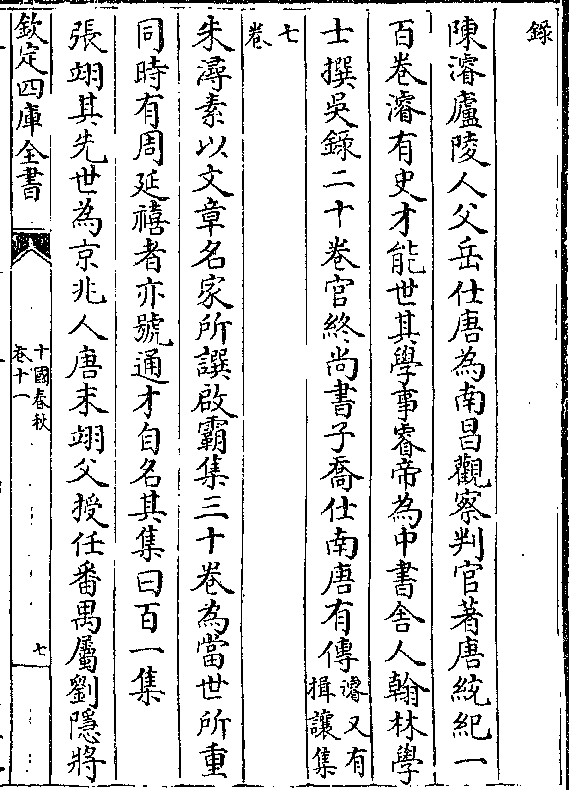 錄
陳濬廬陵人父岳仕唐為南昌觀察判官著唐統紀一
百卷濬有史才能世其學事睿帝為中書舍人翰林學
士撰吳錄二十卷官終尚書子喬仕南唐有傳濬又有
揖讓集
七
卷
朱潯素以文章名家所譔啟霸集三十卷為當世所重
同時有周延禧者亦號通才自名其集曰百一集
張翊其先世為京兆人唐末翊父授任番禺屬劉隱將
欽定四庫全書
十國春秋
卷十一
七